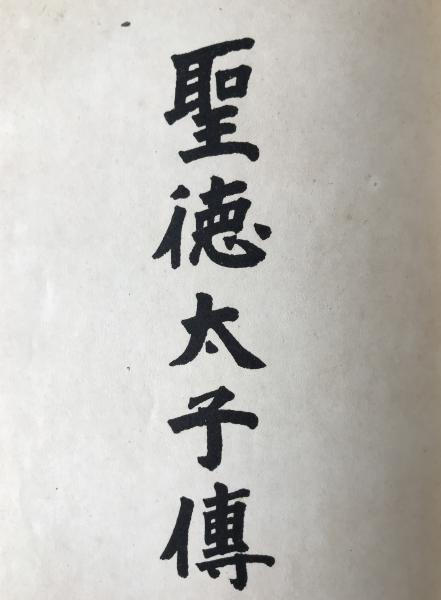 聖徳太子傳